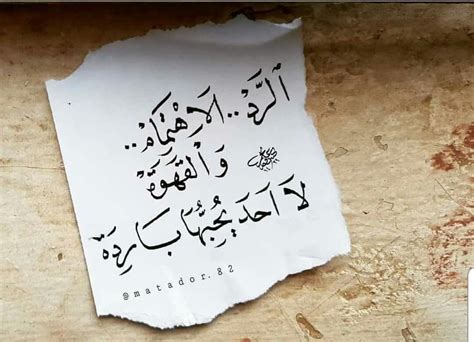 الرَّد.. الَاهْتِمَامْ..
وَالْقَهْوَةْ
لَا احَد يُحِبُّهَا بَارِدَهْ
@matador.82